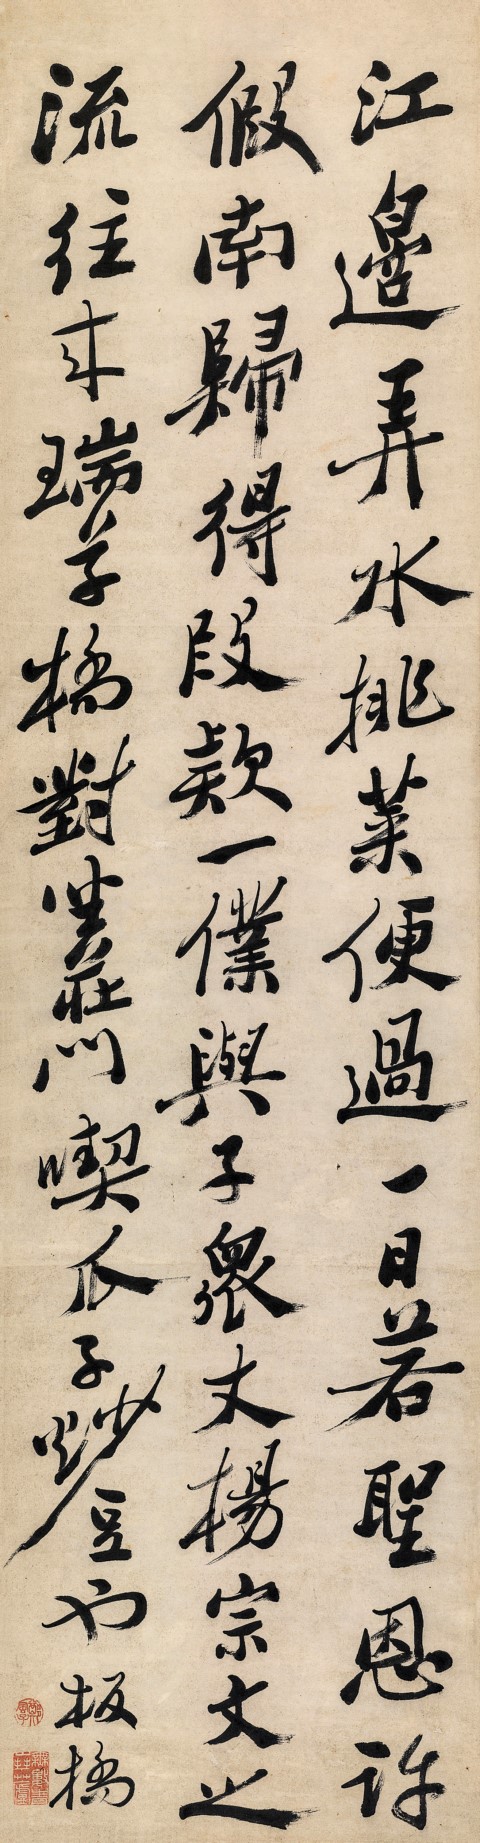 江邊弄水挑菜便過一日若聖恩許
假南歸得段款一僕與子衆丈楊宗文之
流往來瑞草橋對慶門喫瓜子炒豆也
板橋